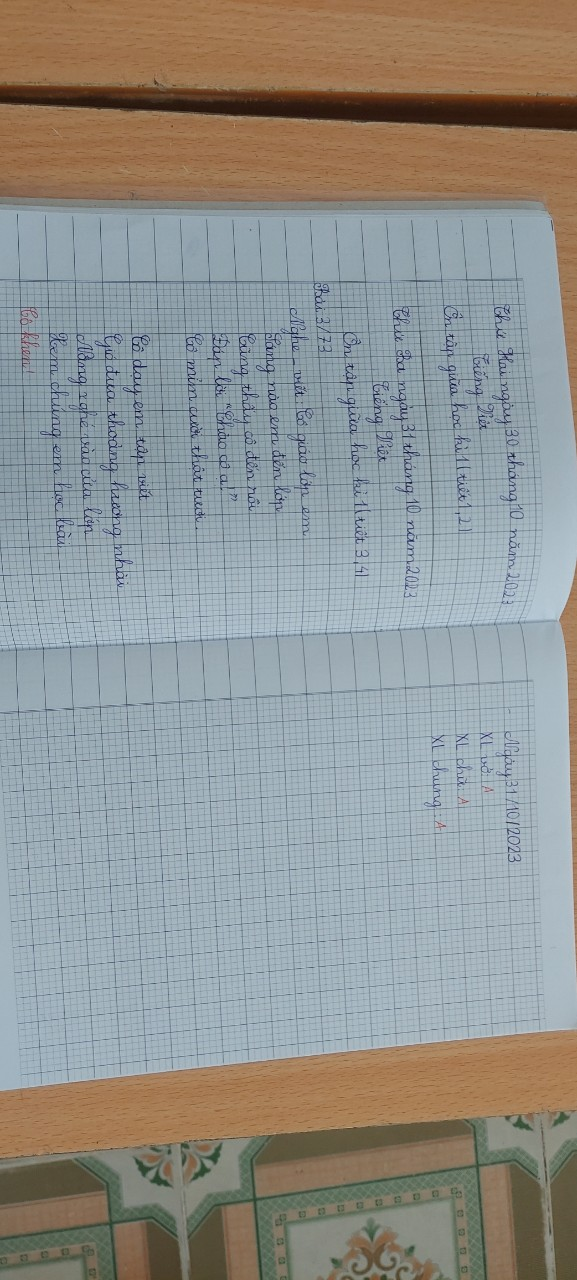 Thứ Hai ngày 30 tháng 10 năm 2023
Tiếng Việt
Ôn tập giữa học kì 1 (tiết 1,2)
Thứ Ba ngày 31 tháng 10 năm 2023
Tiếng Việt
Ôn tập giữa học kì 1 (tiết 3,4)
Bài 3/73
Nghe - viết: Cô giáo lớp em
Sáng nào em đến lớp
Cũng thấy cô đến rồi
Đáp lời "Chào cô ạ!"
Cô mỉm cười thật tươi.
Cô dạy em tập viết
Gió đưa thoảng hương nhài
Nắng ghé vào cửa lớp
Xem chúng em học bài
Cô khen!
- Ngày 31/10/2023
XL vở: A
XL chữ: A
XL chung: A